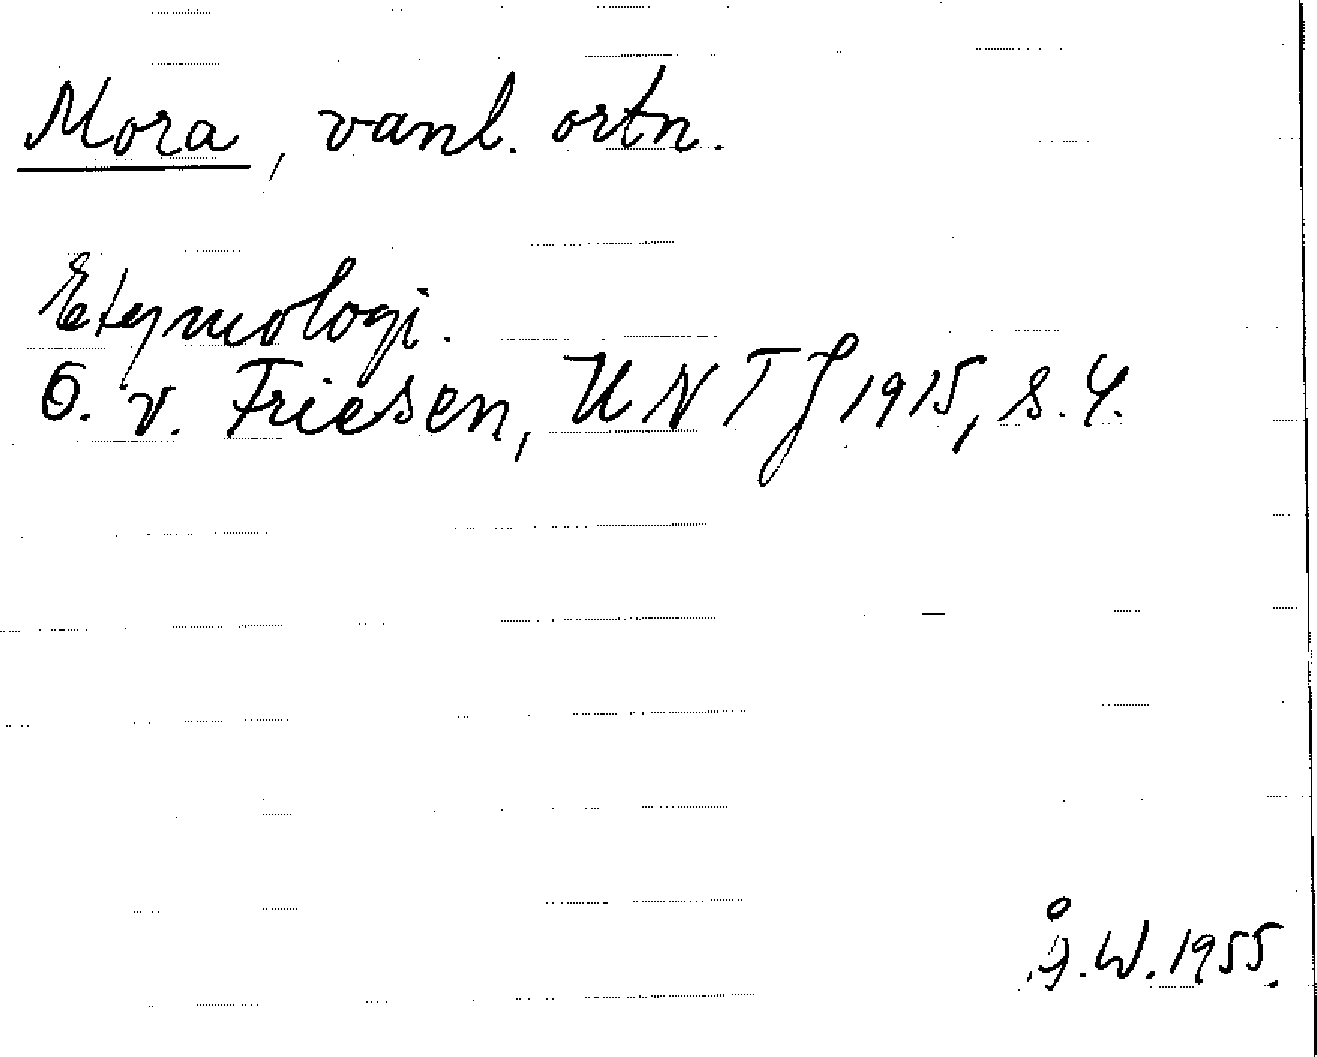 Mora, vanl. ortn.
Etymologi.
O. v. Friesen, UNTJ 1915, s. 4.
Å. W. 1955.